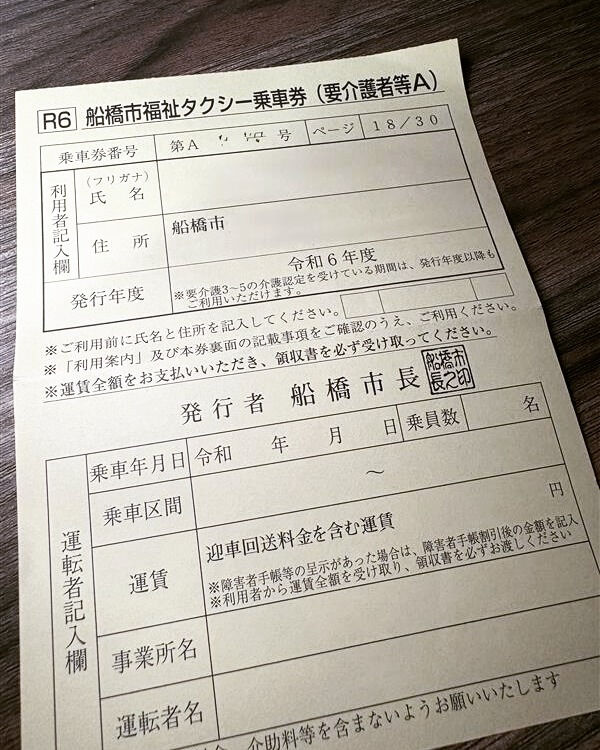 R6 船橋市福祉タクシー乗車券（要介護者等A）
乗車券番号 第A 号 ページ 18／30
利用者記入欄
（フリガナ）
氏 名
住 所 船橋市
発行年度 令和6年度
※要介護3～5の介護認定を受けている期間は、発行年度以降も
ご利用いただけます。
※ご利用前に氏名と住所を記入してください。
※「利用案内」及び本券裏面の記載事項をご確認のうえ、ご利用ください。
※運賃全額をお支払いいただき、領収書を必ず受け取ってください。
発行者 船橋市長
船橋市
長之印
運転者記入欄
乗車年月日 令和 年 月 日 乗員数 名
乗車区間 ～
運賃 円
迎車回送料金を含む運賃
※障害者手帳等の呈示があった場合は、障害者手帳割引後の金額を記入
※利用者から運賃全額を受け取り、領収書を必ずお渡しください
事業所名
運転者名
介助料等を含まないようお願いいたします